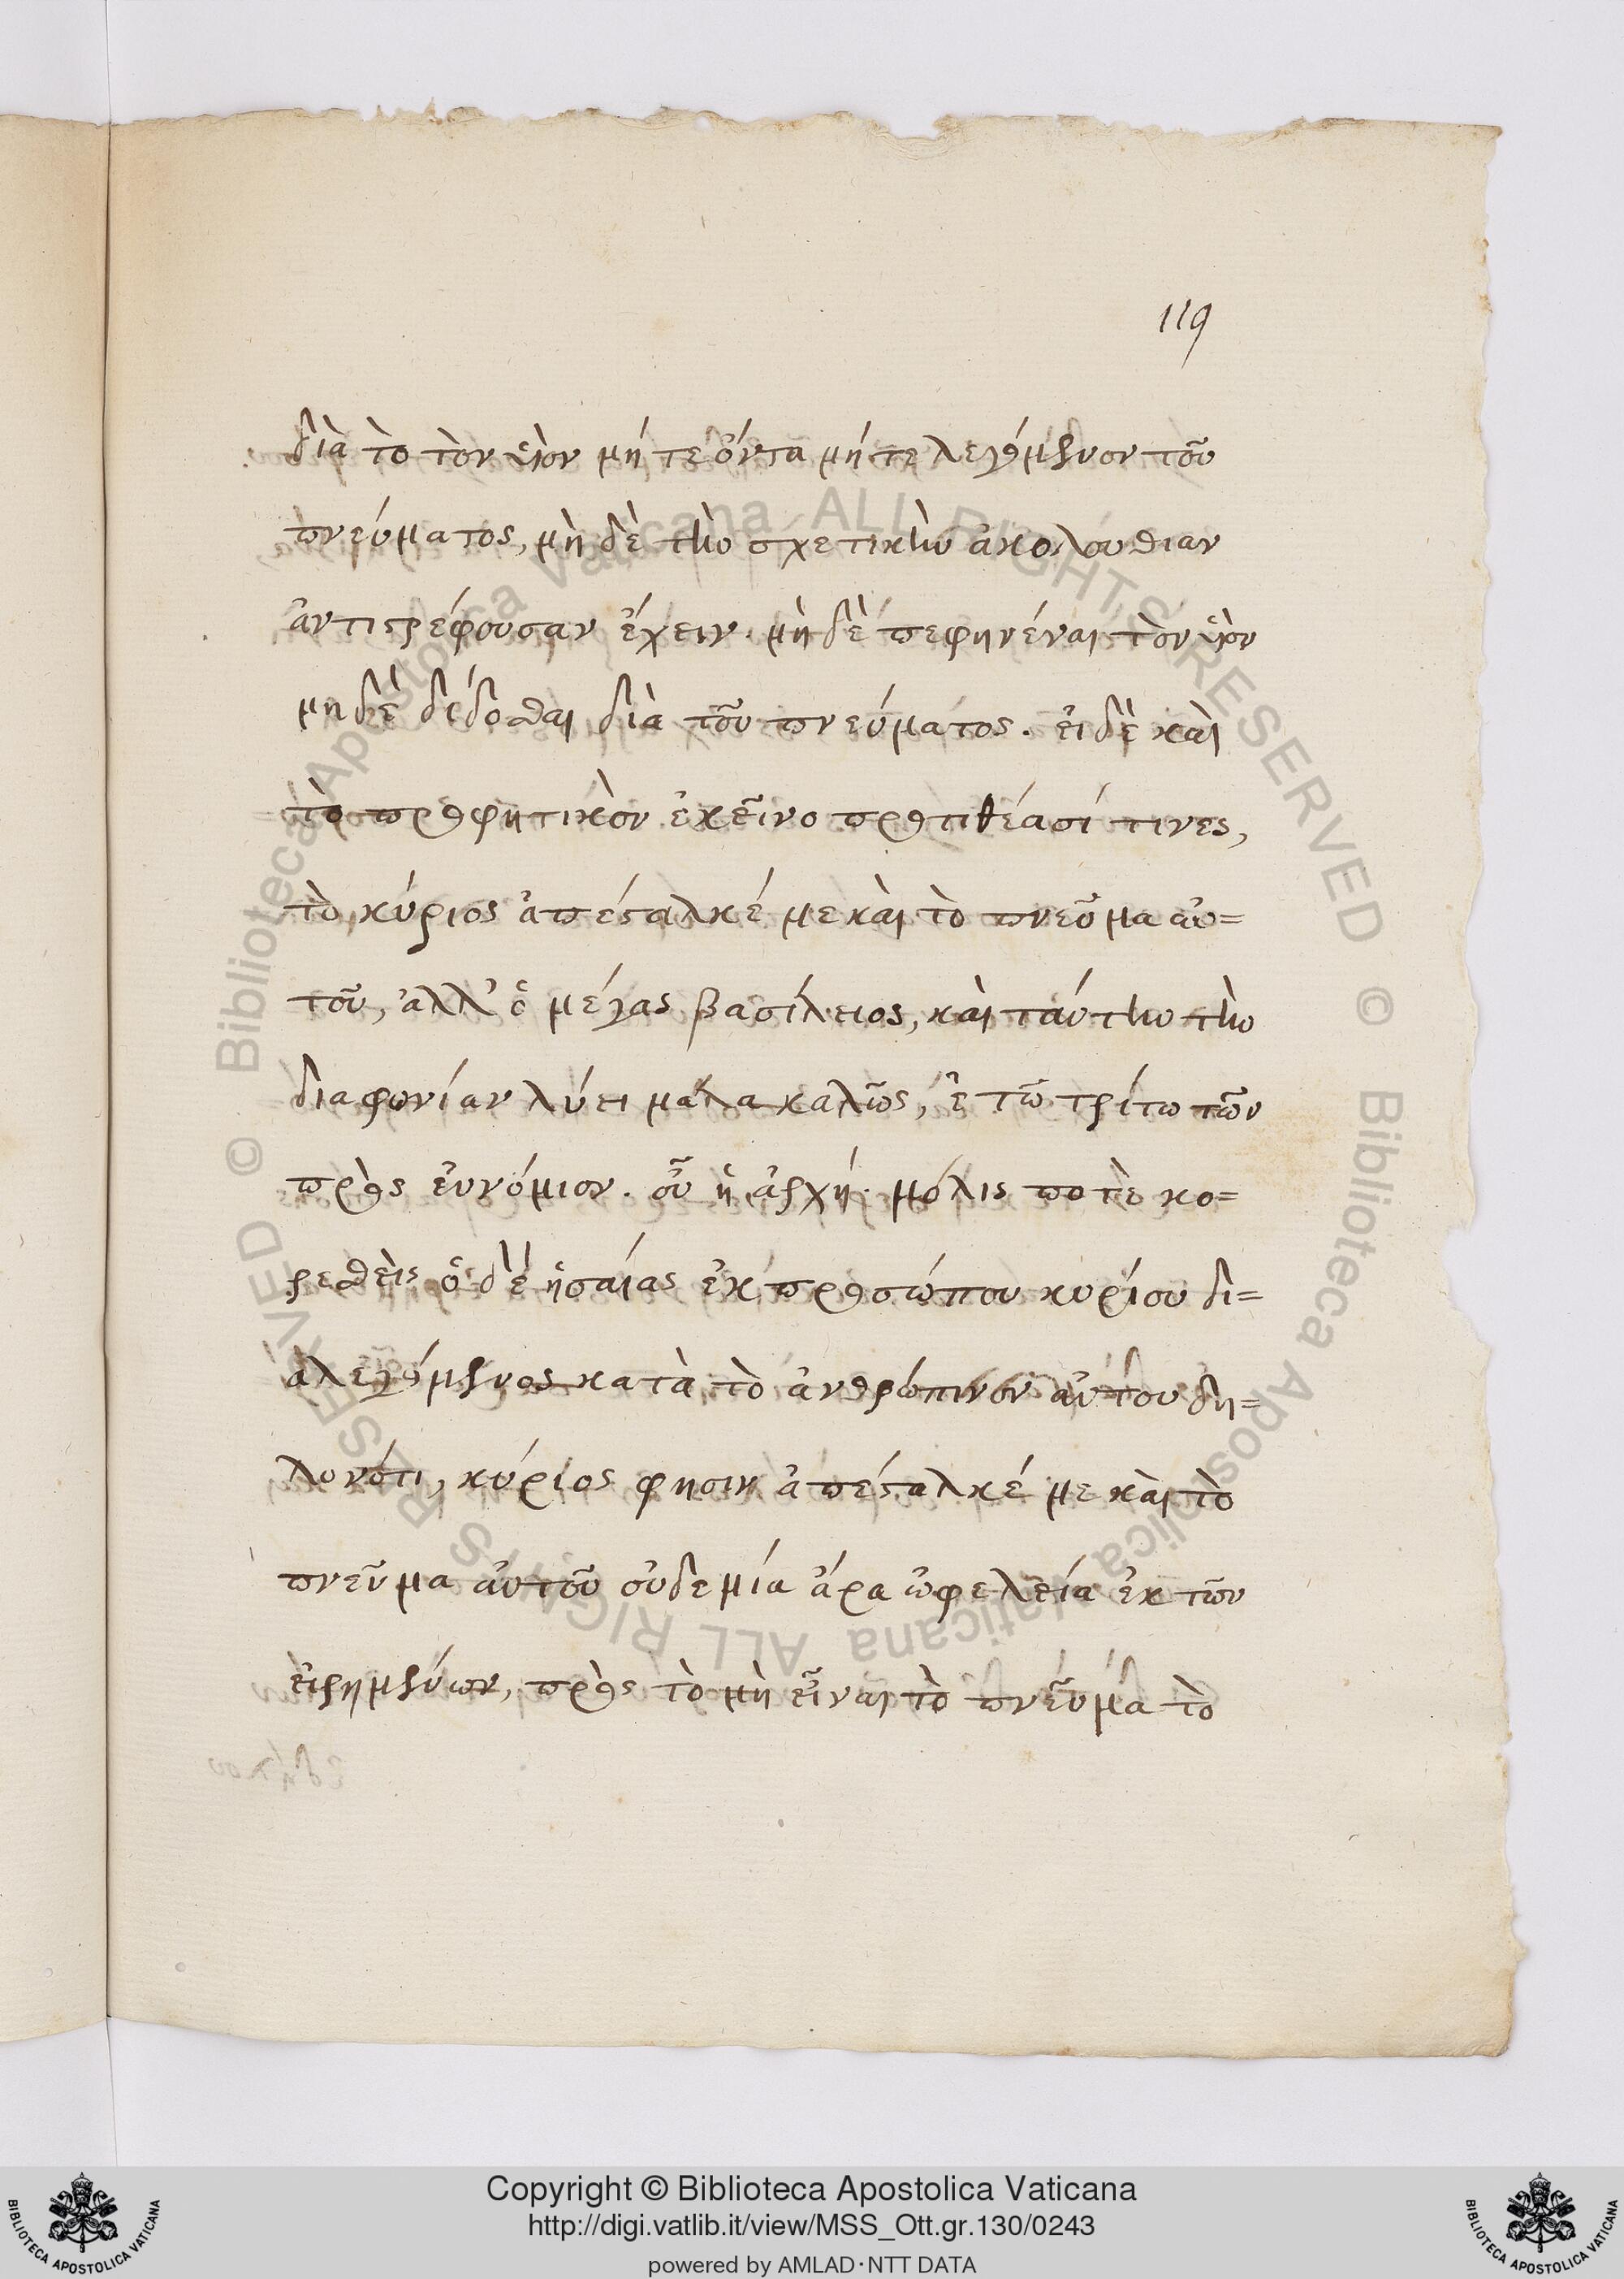 119
διὰ τὸ τὸν υἱὸν μήτε ὄντα μήτε λεγόμενον τοῦ
πνεύματος, μὴ δὲ τὴν σχετικὴν ἀκολουθιαν
ἀντιστρέφουσαν ἔχειν. μὴ δὲ πεφηνέναι τὸν υἱὸν
μηδὲ δίδοσθαι διὰ τοῦ πνεύματος. εἰ δὲ καὶ
τὸ προφητικὸν ἐκεῖνο προτιθέασί τινες,
τὸ κύριος ἀπέσταλκέ με καὶ τὸ πνεῦμα αὐ=
τοῦ, ἀλλ' ὁ μέγας βασίλειος, καὶ ταύτην τὴν
διαφωνίαν λύει μάλα καλῶς, ἐ τῶ τρίτω τῶν
πρὸς εὐνόμιον. οὗ ἡ ἀρχή. μόλις ποτὲ κο=
ρεσθεὶς ὁ δὲ ἡσαίας ἐκ προσώπου κυρίου δι=
αλεγόμενος κατὰ τὸ ἀνθρώπινον αὐτου δη=
λονότι, κύριος φησιν ἀπέσταλκέ με καὶ τὸ
πνεῦμα αὐτοῦ οὐδεμία ἄρα ὠφελεία ἐκ τῶν
εἰρημένων, πρὸς τὸ μὴ εἶναι τὸ πνεῦμα τὸ
Copyright © Biblioteca Apostolica Vaticana
http://digi.vatlib.it/view/MSS_Ott.gr.130/0243
powered by AMLAD·NTT DATA
© Biblioteca Apostolica Vaticana ALL RIGHTS RESERVED
© Biblioteca Apostolica Vaticana ALL RIGHTS RESERVED
BIBLIOTECA APOSTOLICA VATICANA
BIBLIOTECA APOSTOLICA VATICANA